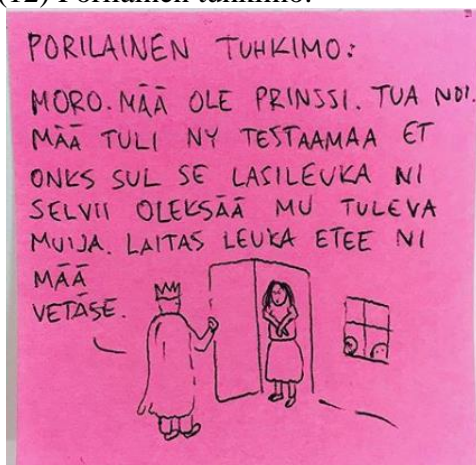 (12) Porilainen tuhkimo:
PORILAINEN TUHKIMO:
MORO. MÄÄ OLE PRINSSI. TUA NOI.
MÄÄ TULI NY TESTAAMAA ET
ONKS SUL SE LASILEUKA NI
SELVII OLEKSÄÄ MU TULEVA
MUIJA. LAITAS LEUKA ETEE NI
MÄÄ
VETÄSE.